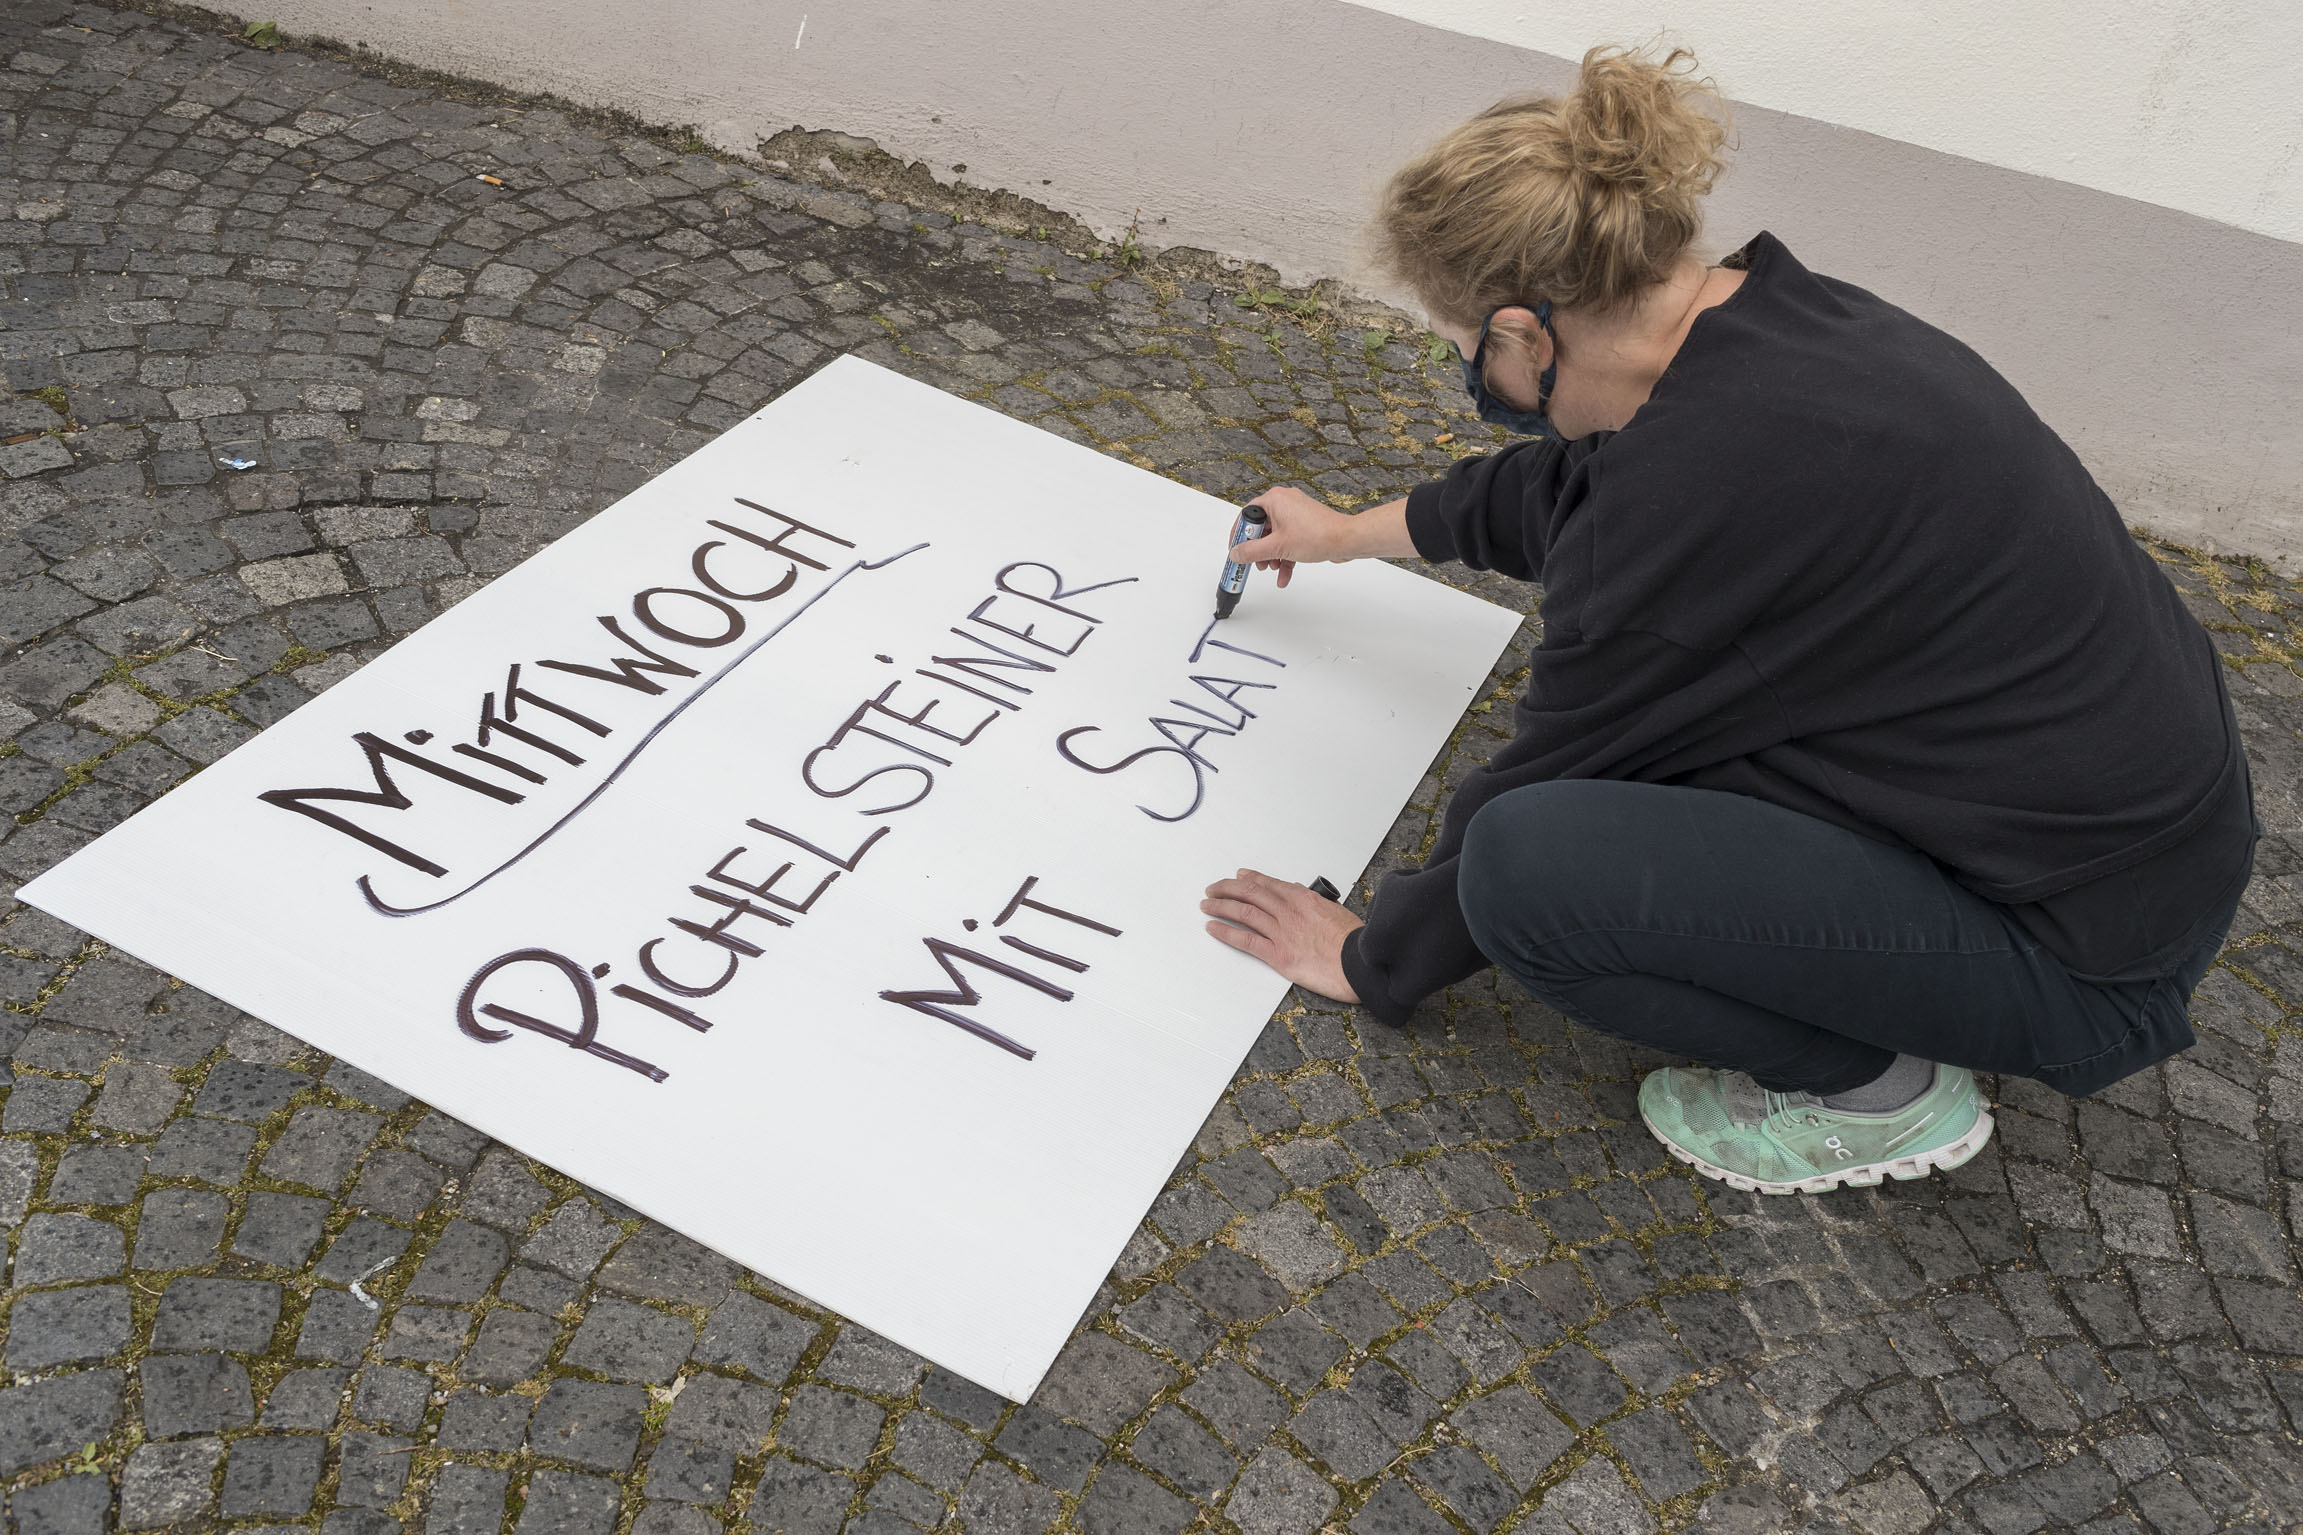 MiTTWOCH
PiCHELSTEiNER
MiT SALAT